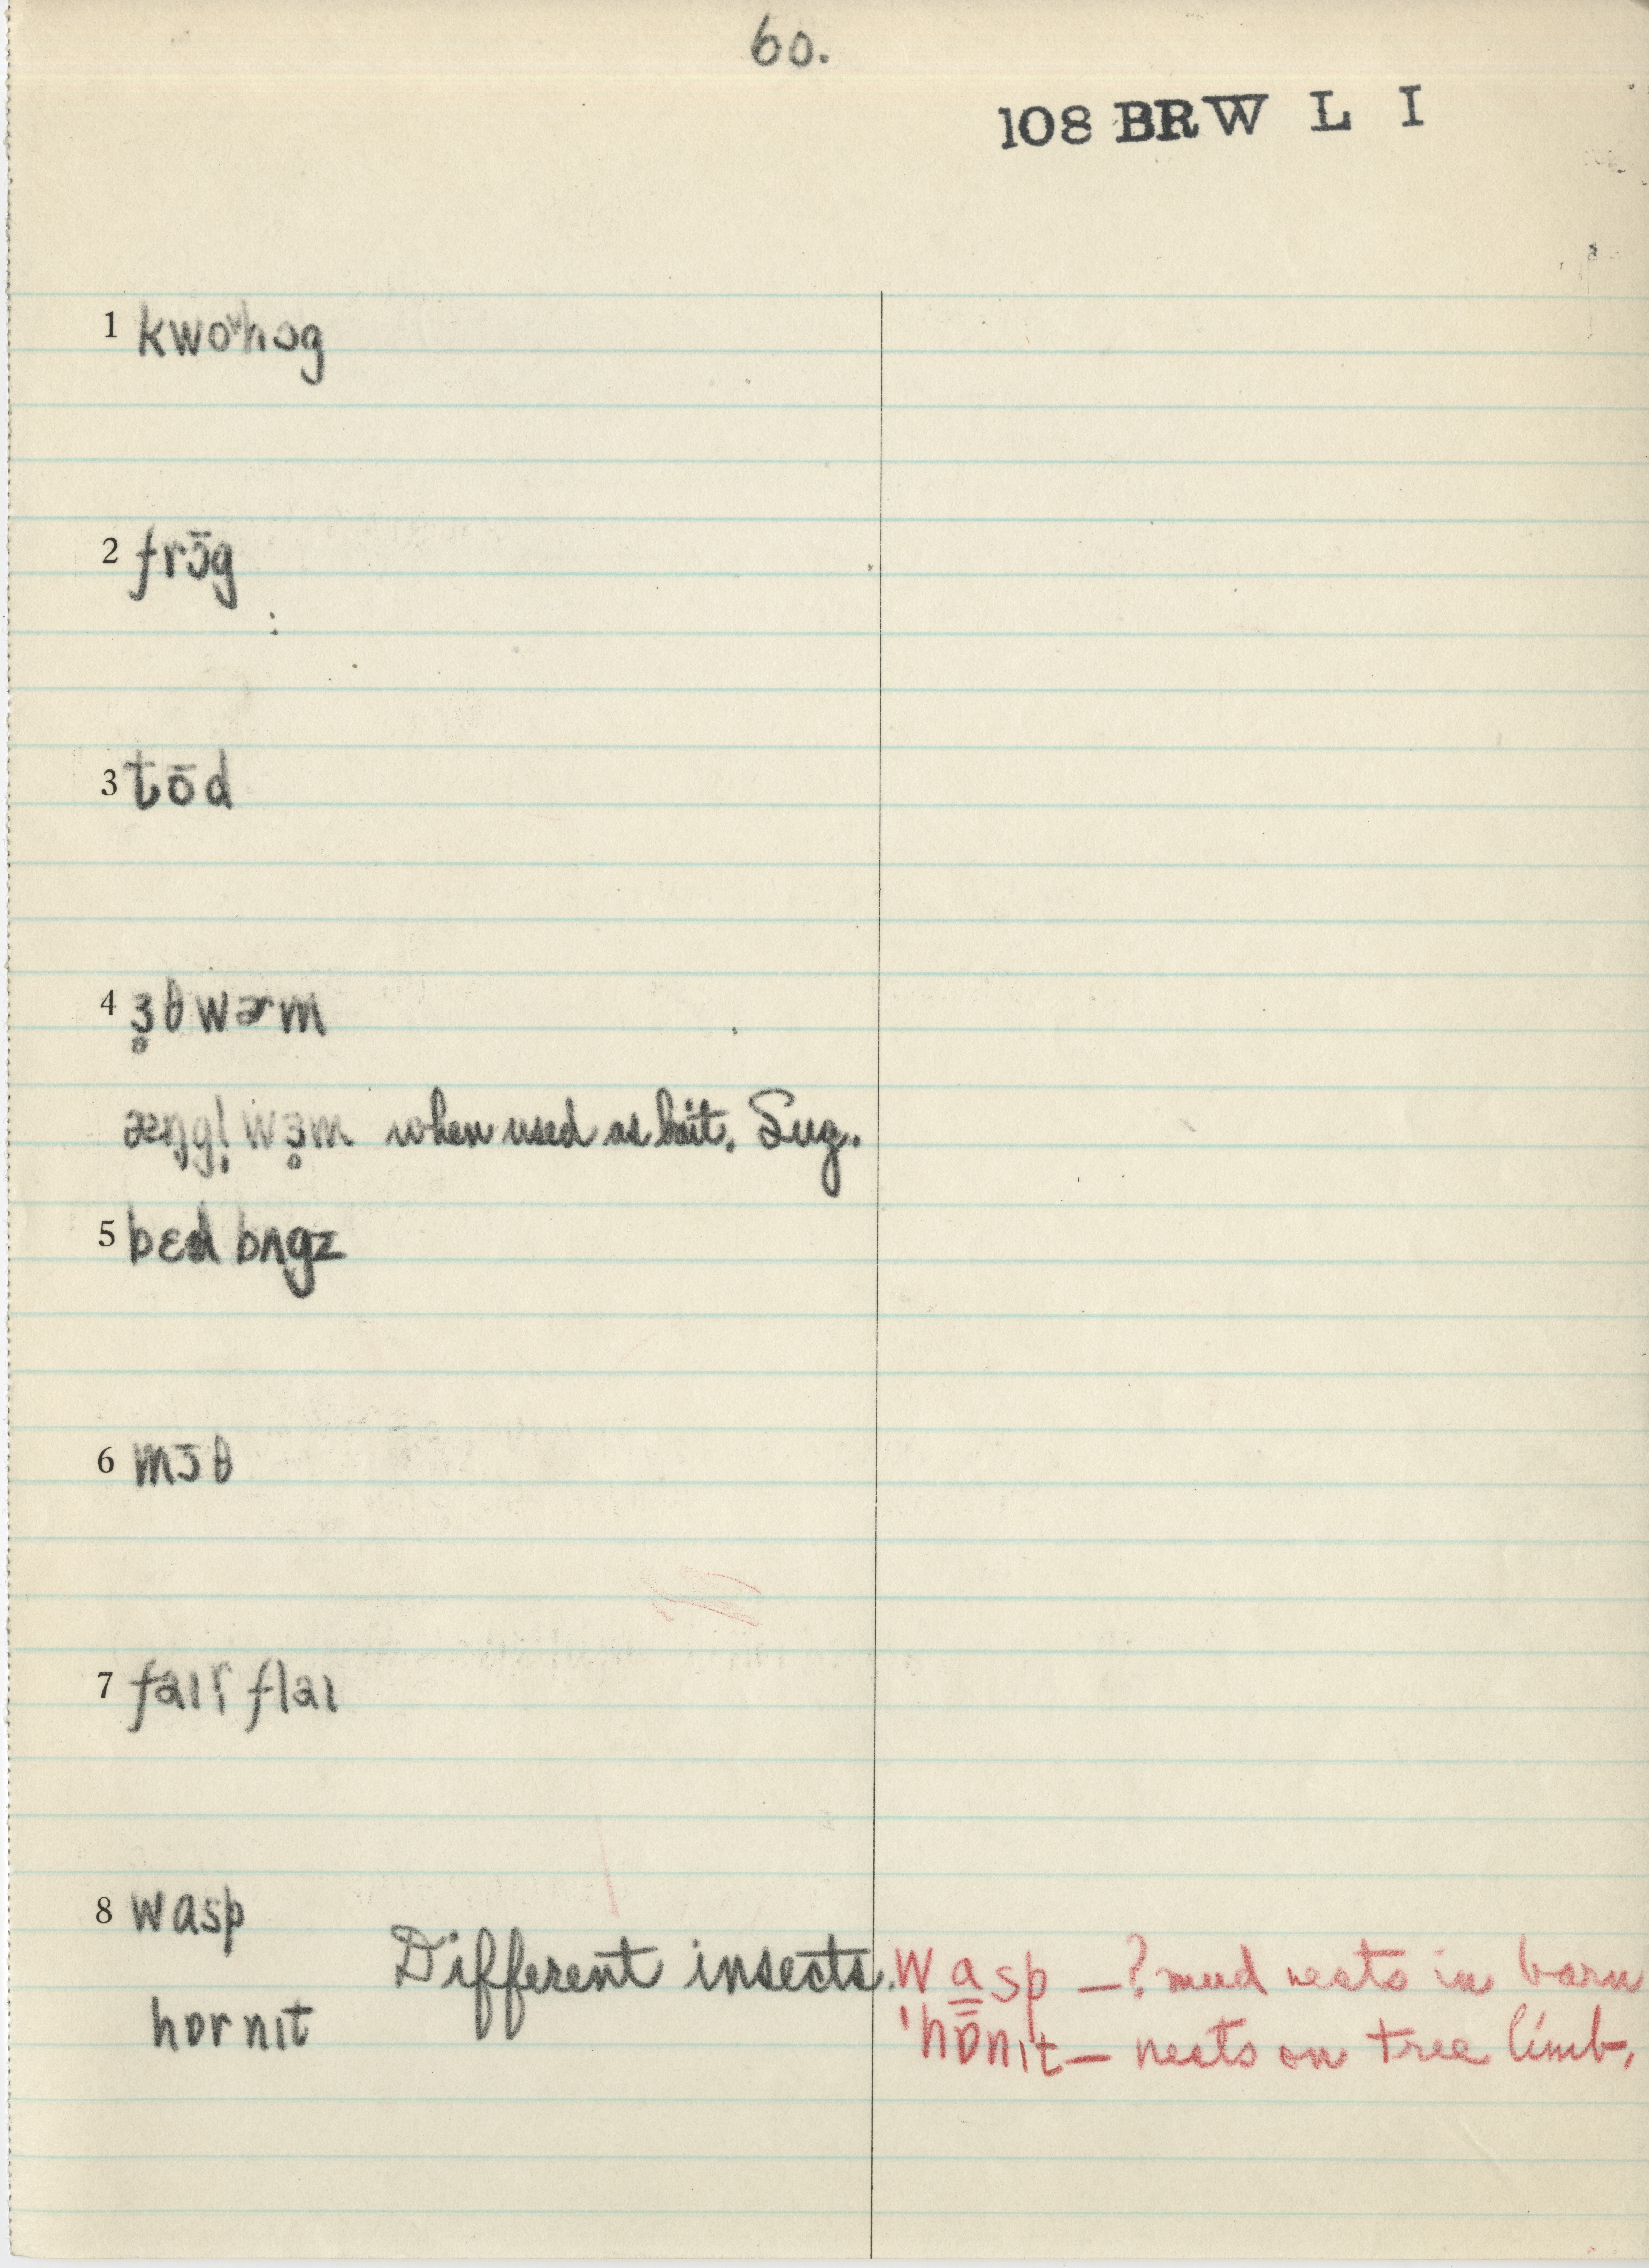 60.
108 BRW L I
1 kwoᵛhɔg
2 frɔ̄g
3 tōd
4 ɜ̥θwɚm
æŋgl̩ wɜ̥m when used as bait. Sug.
5 bɛd bʌgz
6 mɔ̄θ
7 faɪr flaɪ
8 wasp
Different insects. wa̳sp – ? mud nests in barn
hɒrnɪt 'hɒ̄nɪt – nests on tree limb.